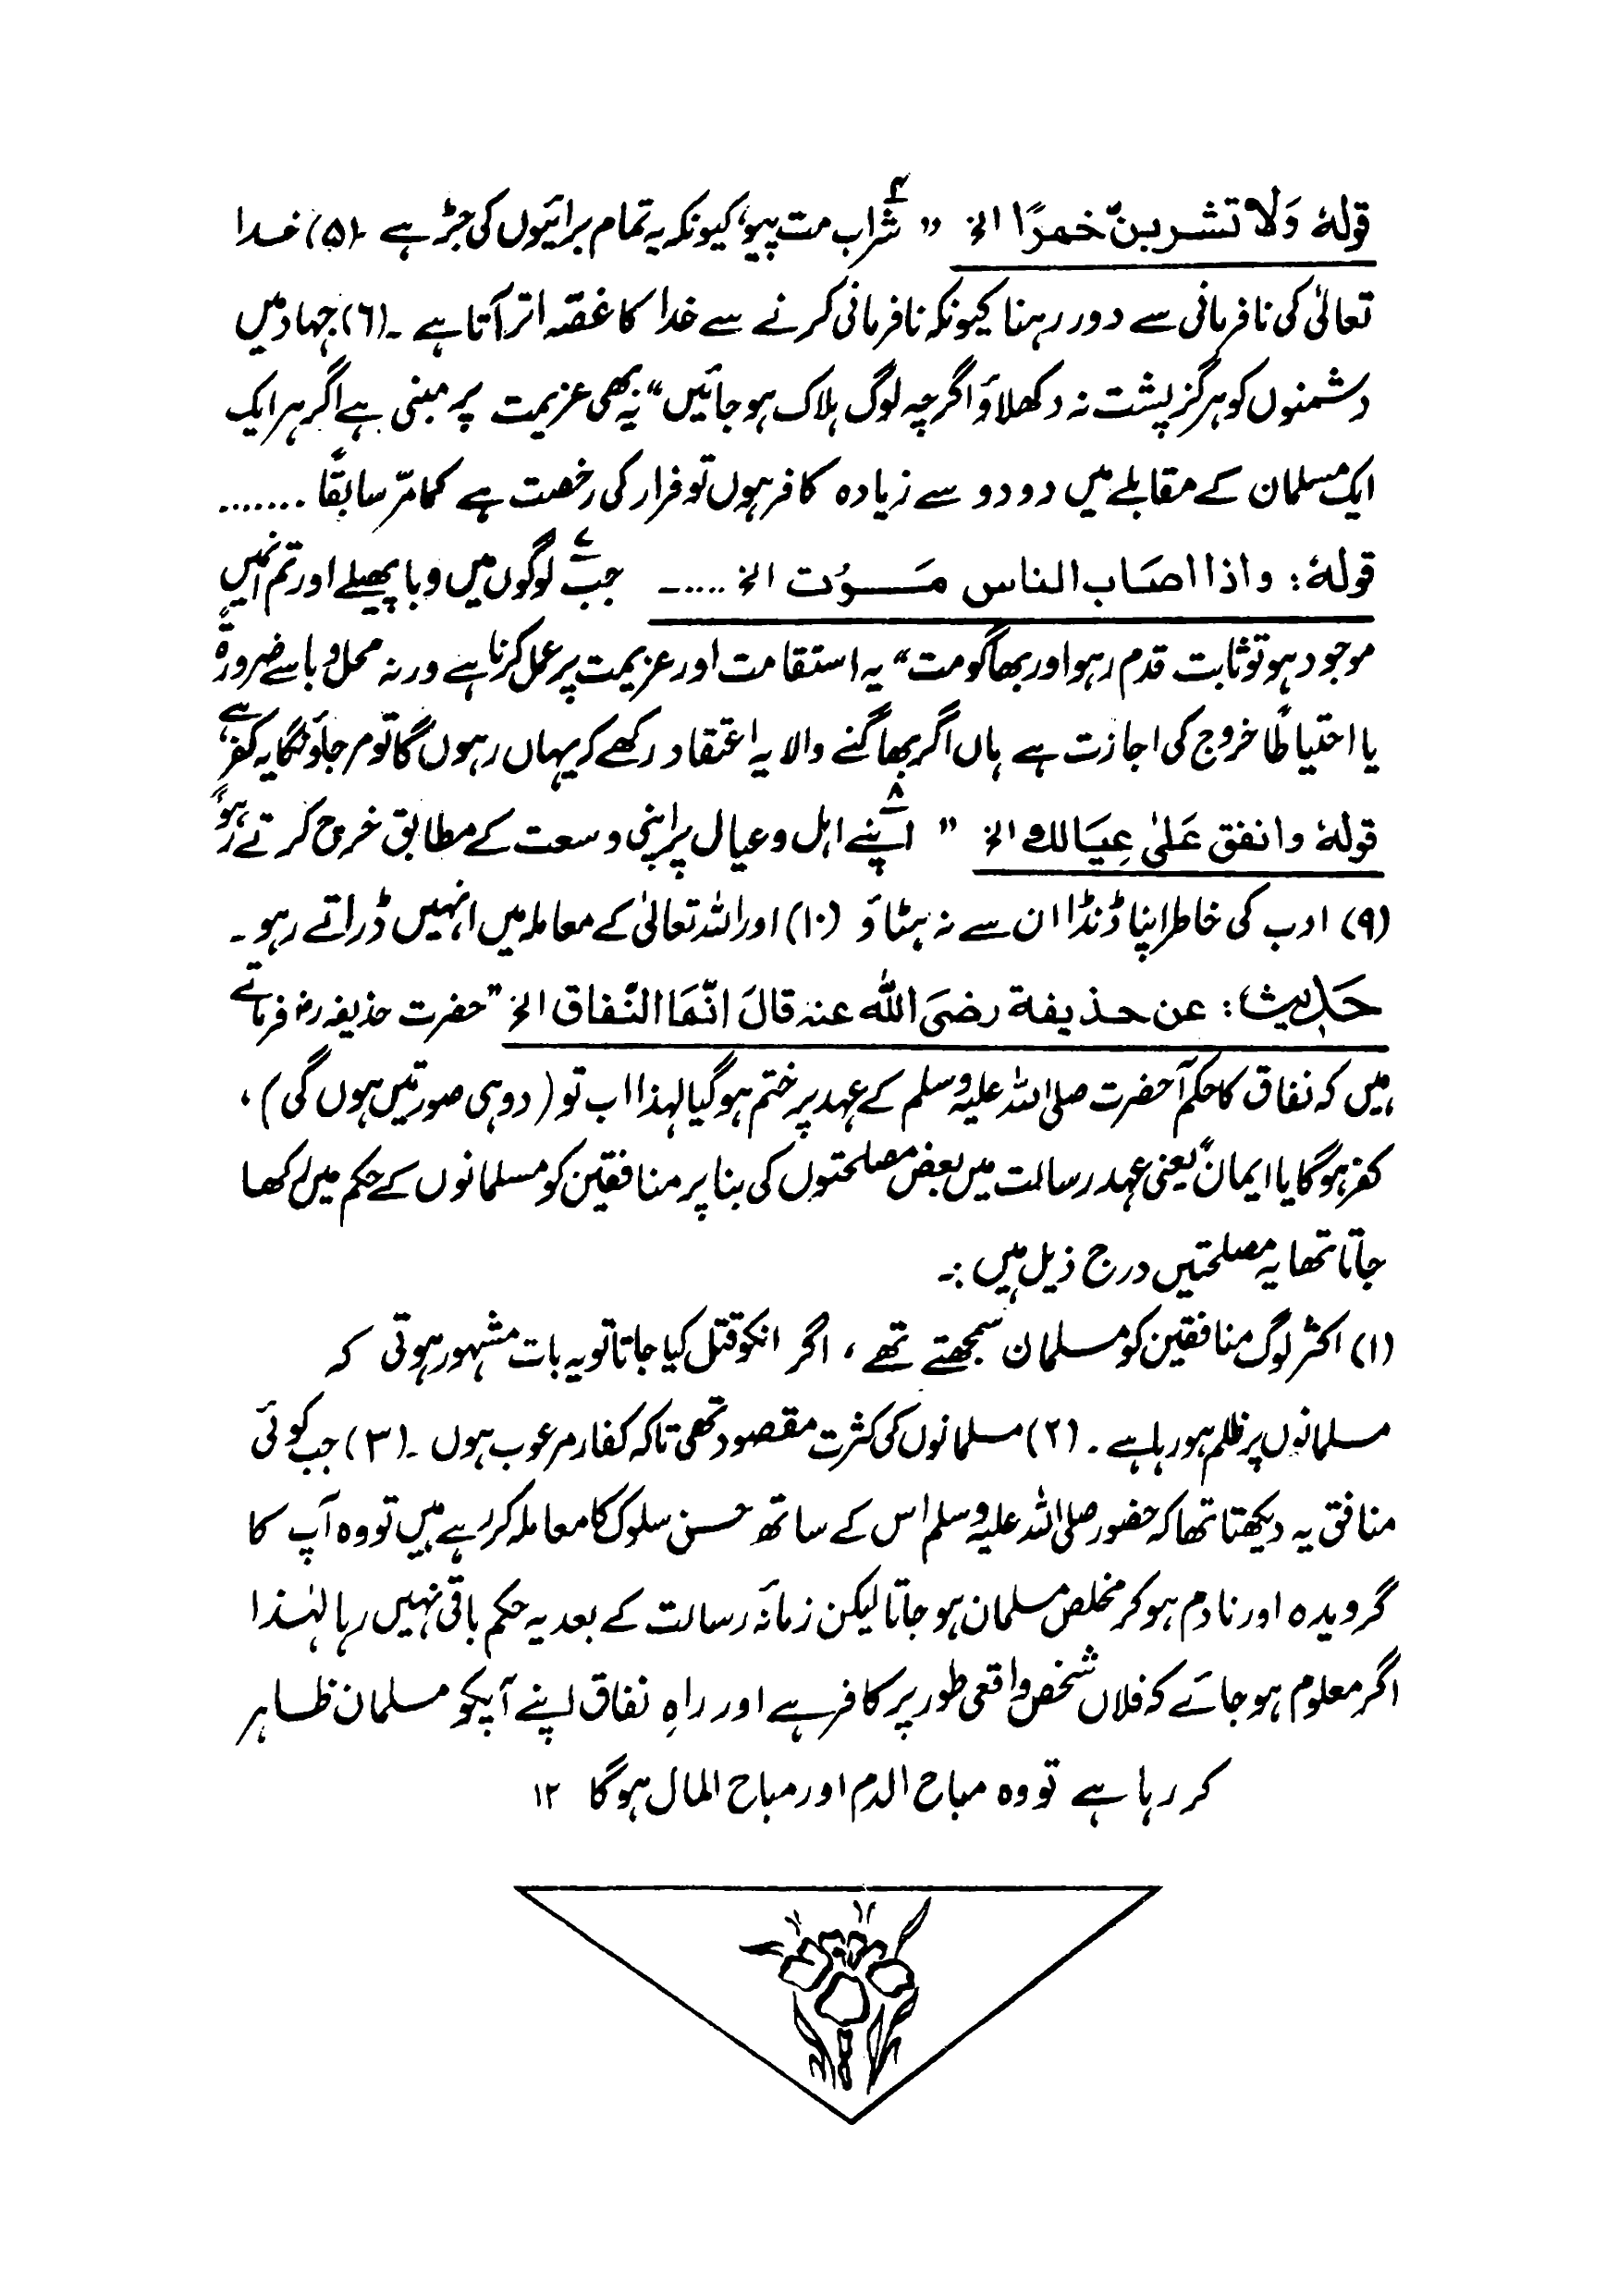 قولهٗ وَلا تشربنّ خمرًا الخ " شراب۴ مت پیو، کیونکہ یہ تمام برائیوں کی جڑ ہے ۔(۵) خدا
تعالیٰ کی نافرمانی سے دور رہنا کیونکہ نافرمانی کرنے سے خدا کا غصّہ اتر آتا ہے ۔(٦) جہاد میں
دشمنوں کو ہرگز پشت نہ دکھلاؤ اگرچہ لوگ ہلاک ہو جائیں" یہ بھی عزیمت پر مبنی ہے اگر ہر ایک
ایک مسلمان کے مقابلے میں دو دو سے زیادہ کافر ہوں تو فرار کی رخصت ہے کمامرّ سابقًا .......
قولهٗ: واذا اصَاب الناس مَوُت الخ ..... جب۷ لوگوں میں وبا پھیلے اور تم انہیں
موجود ہو تو ثابت قدم رہو اور بھاگو مت" یہ استقامت اور عزیمت پر عمل کرنا ہے ورنہ محل وبا سے ضرورةً
یا احتیاطًا خروج کی اجازت ہے ہاں اگر بھاگنے والا یہ اعتقاد رکھے کہ یہاں رہوں گا تو مر جاؤنگا یہ کفر ہے،
قولهٗ وانفق عَلیٰ عِیَالك الخ " اپنے۸ اہل و عیال پر اپنی وسعت کے مطابق خرچ کرتے رہو،
(۹) ادب کی خاطر اپنا ڈنڈا ان سے نہ ہٹاؤ (۱۰) اور اللہ تعالیٰ کے معاملہ میں انہیں ڈراتے رہو ۔
حَدِیث: عن حذیفة رضیَ اللّٰه عنه قالَ انّمَا النّفاق الخ "حضرت حذیفہ رضؓ فرماتے
ہیں کہ نفاق کا حکم آحضرت صلی اللہ علیہ وسلم کے عہد پر ختم ہو گیا لہذا اب تو (دو ہی صورتیں ہوں گی)،
کفر ہوگا یا ایمان" یعنی عہد رسالت میں بعض مصلحتوں کی بنا پر منافقین کو مسلمانوں کے حکم میں رکھا
جاتا تھا یہ مصلحتیں درج ذیل ہیں :۔
(۱) اکثر لوگ منافقین کو مسلمان سمجھتے تھے، اگر انکو قتل کیا جاتا تو یہ بات مشہور ہوتی کہ
مسلمانوں پر ظلم ہو رہا ہے ۔ (۲) مسلمانوں کی کثرت مقصود تھی تاکہ کفار مرعوب ہوں ۔(۳) جب کوئی
منافق یہ دیکھتا تھا کہ حضور صلی اللہ علیہ وسلم اس کے ساتھ حسن سلوک کا معاملہ کر رہے ہیں تو وہ آپ کا
گرویدہ اور نادم ہو کر مخلص مسلمان ہو جاتا لیکن زمانۂ رسالت کے بعد یہ حکم باقی نہیں رہا لہٰذا
اگر معلوم ہو جائے کہ فلاں شخص واقعی طور پر کافر ہے اور راہِ نفاق اپنے آپکو مسلمان ظاہر
کر رہا ہے تو وہ مباح الدم اور مباح المال ہوگا ۱۲